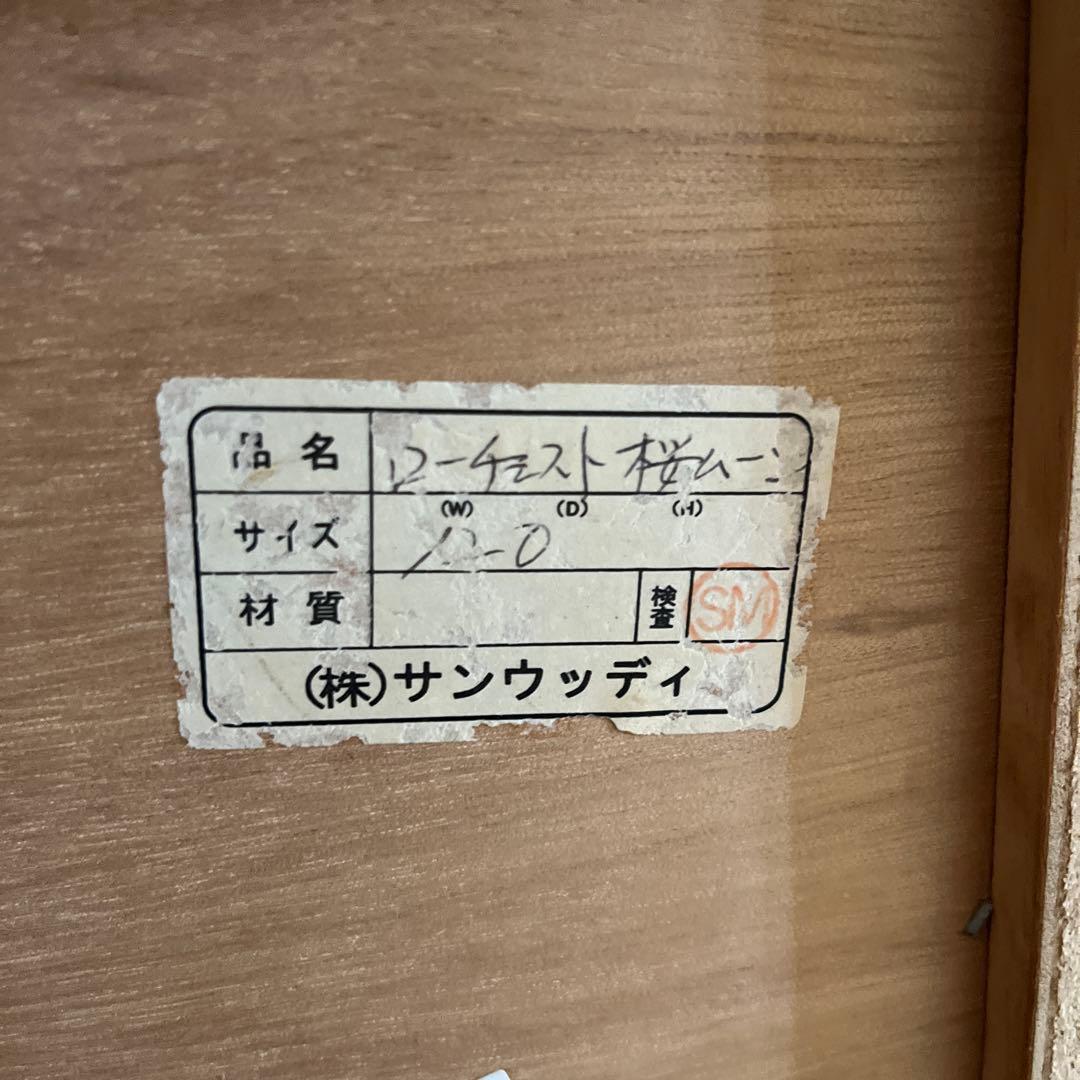 品名 ローチェスト 桜ムーン
サイズ (W) (D) (H)
120
材質 検査 SM
(株)サンウッディ